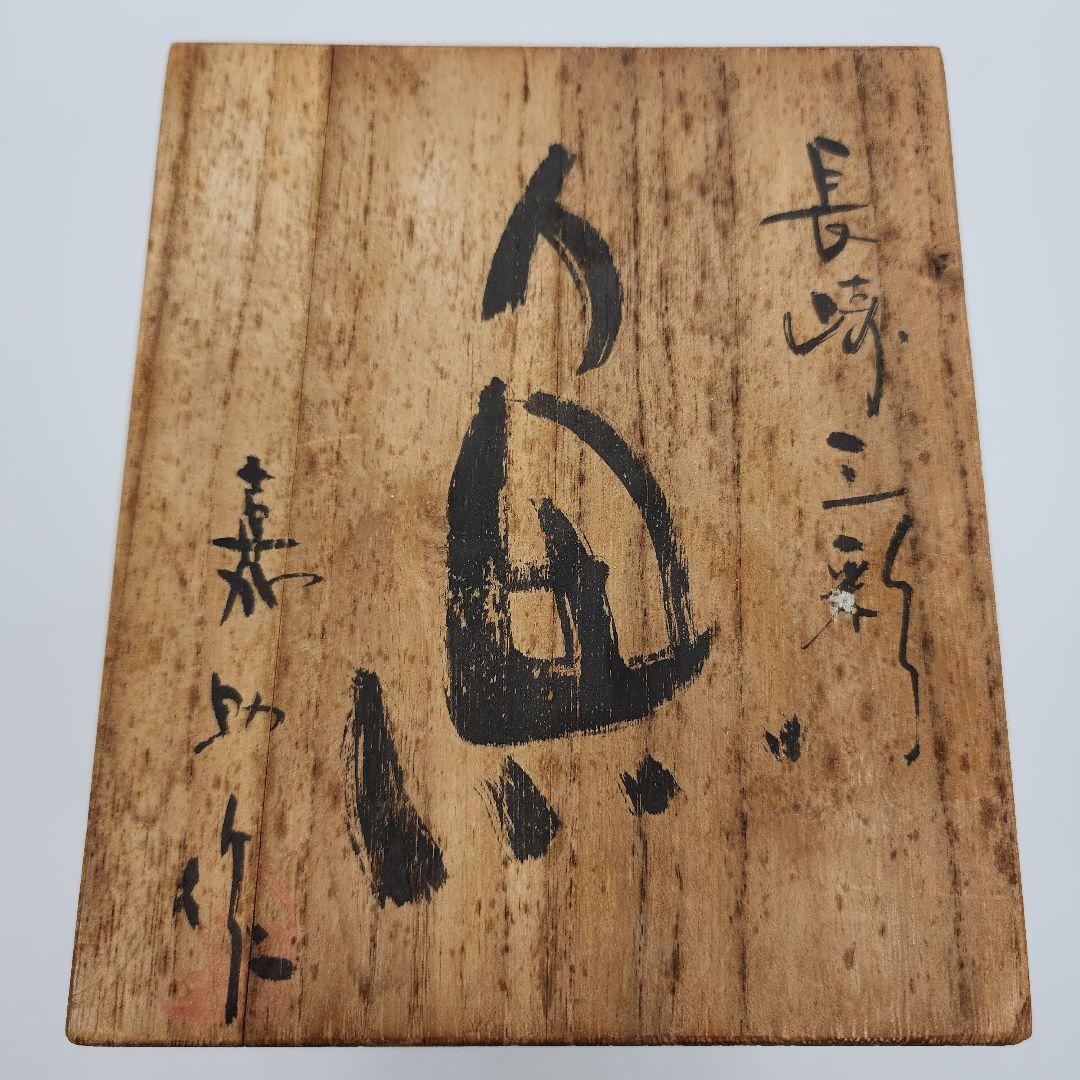 長崎三彩
魚
嘉助作